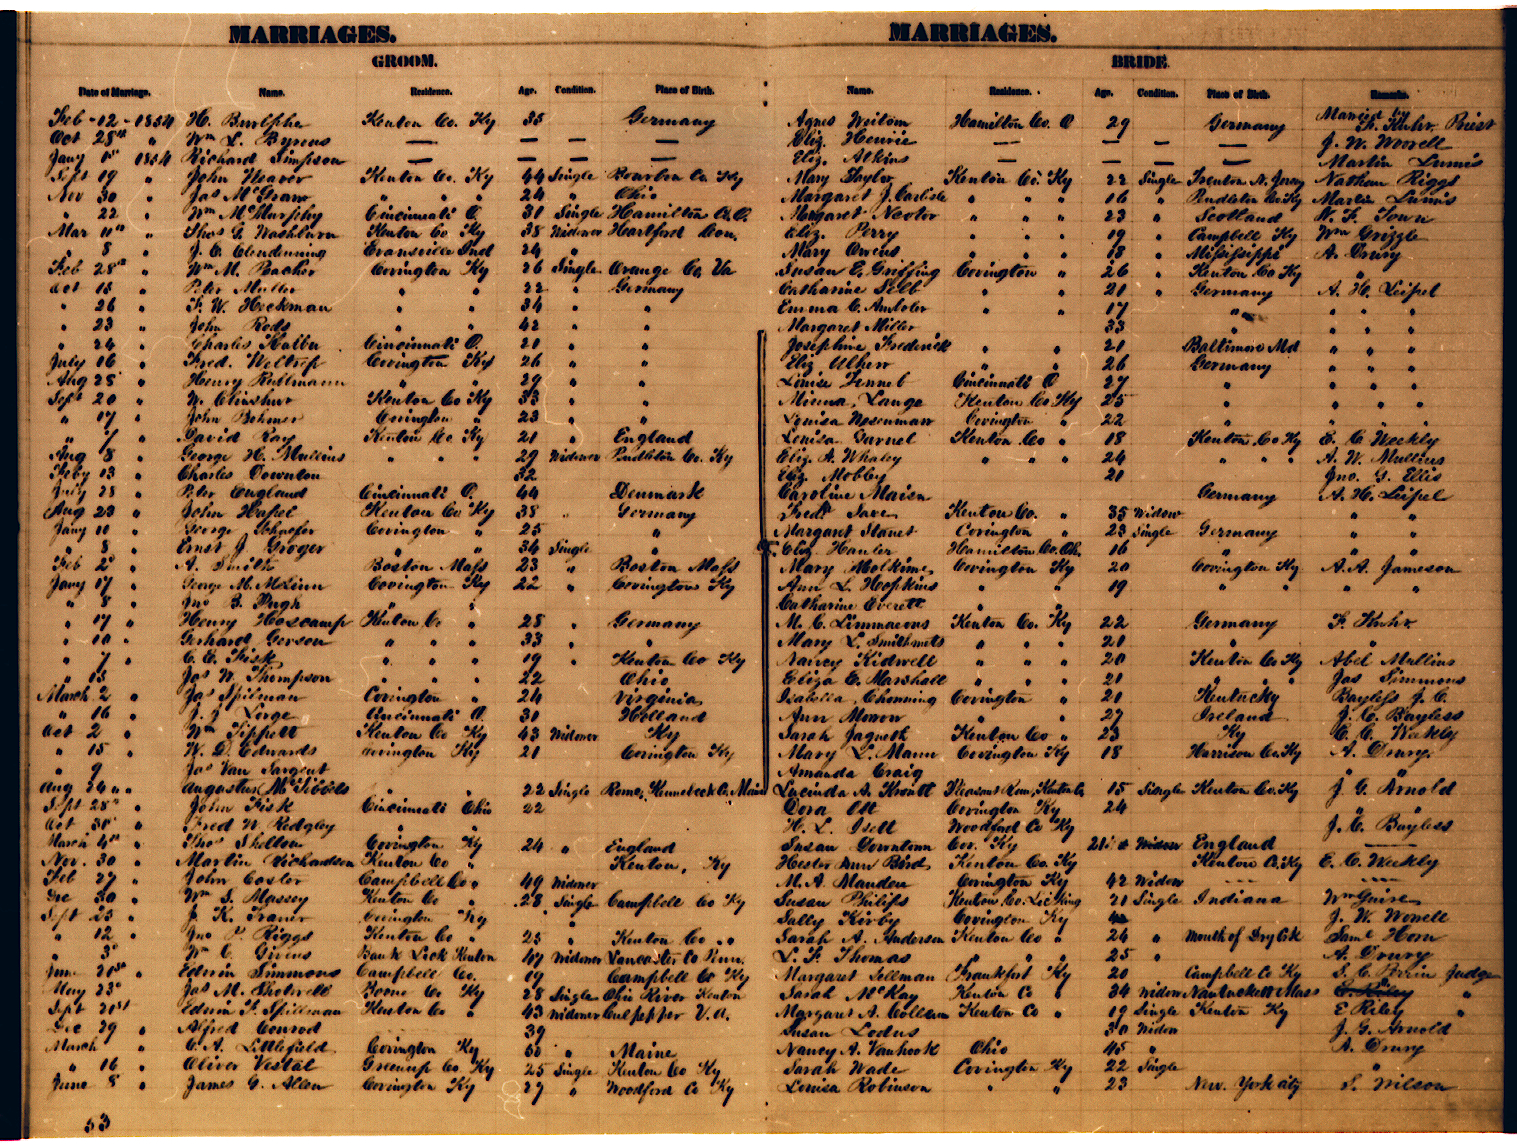 MARRIAGES. MARRIAGES.
GROOM. BRIDE.
Date of Marriage. Name. Residence. Age. Condition. Place of Birth. Name. Residence. Age. Condition. Place of Birth. Remarks.
Feb - 12 - 1854 H. Kenton Co. Ky 35 Germany Agnes Hamilton Co. O 29 Germany Married by F. Kuhr. Priest
Oct 28th " Wm L. Byrens — — — — Eliz. Henrie — — — — J. W. Worrell
Jany 1st 1854 Richard Simpson — — — — Eliz. Atkins — — — — Martin Lumis
Sept 19 " John Weaver Kenton Co. Ky 44 Single Bourbon Co Ky Mary Taylor Kenton Co. Ky 22 Single Trenton N. Jersey Nathan Riggs
Nov 30 " Jas McGraw " " " 24 " Ohio Margaret J. Carlisle " " " 16 " Pendleton Co. Ky Martin Lumis
" 22 " Wm McMurphy Cincinnati O. 31 Single Hamilton Co. O. Margaret Nector " " 23 " Scotland W. F. Town
Mar 11th " Thos G. Washburn Kenton Co Ky 38 Widower Heartford Con. Eliz. Perry " " 19 " Campbell Ky Wm Grizzle
" 8 " J. C. Clendenning Evansville Ind 24 " Mary Owens " " 18 " Mississippi A. Drury
Feb 28th " Wm M. Covington Ky 26 Single Orange Co, Va Susan E. Griffing Covington " 26 " Kenton Co Ky "
Oct 15 " Peter Muller " " 22 " Germany Catharine " " 21 " Germany A. H. Leipel
" 26 " F. W. Heckman " " 34 " " Emma C. " " 17 " " " "
" 23 " John Rods " " 42 " " Margaret Miller 33 " " " "
" 24 " Charles Cincinnati O. 21 " " Josephine Frederick " " 21 Baltimore Md " " "
July 16 " Fred. Weltrip Covington Ky 26 " " Eliz " " 26 Germany " " "
Aug 28 " Henry " " 29 " " Louisa Cincinnati O 27 " " " "
Sept 20 " W. Kenton Co Ky 33 " " Minna, Lange Kenton Co Ky 25 " " " "
" 17 " John Bohmer Covington " 23 " " Louisa Covington " 22 " " " "
" 7 " David Ray Kenton Co Ky 21 " England Louisa Garnel Kenton Co " 18 Kenton Co Ky E. C. Weekly
Aug 8 " George H. Mullins " " " 29 Widower Pendleton Co. Ky Eliz. A. Whaley " " " 24 " " " A. W. Mullins
Feby 13 " Charles Downton 32 Eliz. Mobley 21 Jno. G. Ellis
July 25 " Peter England Cincinnati O. 44 Denmark Caroline Maien Germany A. H. Leipel
Aug 23 " John Hafel Kenton Co Ky 38 " Germany Fred. Kenton Co. " 35 Widow " "
Jany 10 " George Schaefer Covington " 25 " Margaret Covington " 23 Single Germany " "
" 8 " Ernst J. Groger " " 34 Single Eliz. Hamilton Co. Oh. 16 " " "
Feb 2d " A. Smith Boston Mass 23 " Boston Mass Mary Covington Ky 20 Covington Ky A. A. Jameson
Jany 17 " George M. Covington Ky 22 " Covington Ky Ann L. Hopkins " " 19 " " " "
" 8 " Jno B. Pugh " " Catharine Everett " "
" 17 " Henry Hoscamp Kenton Co " 28 " Germany M. C. Kenton Co. Ky 22 Germany F. Kuhr
" 10 " Gerhard Gerson " " " 33 " " Mary L. " " " 21 " "
" 7 " C. C. Fisk " " " 19 " Kenton Co Ky Nancy Kidwell " " " 20 Kenton Co Ky Abel Mullins
" 13 Jas W. Thompson " " " 22 Ohio Eliza E. Marshall " " " 21 " " " Jas Simmons
March 2 " Jas Spilman Covington " 24 Virginia Isabella Covington " 21 Kentucky Bayless J. C.
" 16 " J. J Lorge Cincinnati O. 31 Holland Ann Morrow " " 27 Ireland J. C. Bayless
Oct 2 " Wm Tippett Kenton Co Ky 43 Widower Ky Sarah Jaquett Kenton Co " 23 Ky E. C. Weekly
" 15 " W. D. Edwards Covington Ky 21 Covington Ky Mary L. Mann Covington Ky 18 Harrison Co. Ky A. Drury
" 9 Jas Van Sargent Amanda Craig " "
Aug 24 " " Augustus McTibbets " " 22 Single Rome, Kennebeck Co. Maine Lucinda A. Pleasant Run, Kenton Co 15 Single Kenton Co. Ky J. G. Arnold
Sept 28th " John Fisk Cincinnati Ohio 22 Dora Ott Covington Ky 24 " "
Oct 30 " Fred W Redgley " " H. L. Isett Woodford Co Ky J. C. Bayless
March 4th " Thos Shelton Covington Ky 24 " England Susan Downtown Cov. Ky 21 Widow England —
Nov. 30 " Martin Richardson Kenton Co " Kenton, Ky Hester Ann Bird Kenton Co. Ky Kenton Co. Ky E. C. Weekly
Feb 27 " John Coster Campbell Co " 49 Widower M. A. Mauden Covington Ky 42 Widow — —
Dec 30 " Wm S. Massey Kenton Co " 28 Single Campbell Co Ky Susan Philips Kenton Co. Licking 21 Single Indiana Wm Guire
Sept 25 " J. K. Covington Ky " Sally Kirby Covington Ky 42 J. W. Worrell
" 12 " Jno P. Riggs Kenton Co " 25 " Kenton Co " " Sarah A. Anderson Kenton Co " 24 " Mouth of Dry Crk Saml Horn
" 3d " Wm C. Givens Bank Lick Kenton 47 Widower Lancaster Co Penn. L. F. Thomas " " " 25 " " A. Drury
June 21st " Edwin Simmons Campbell Co. 19 Campbell Co Ky Margaret Tellman Frankfort Ky 20 Campbell Co Ky S. C. Judge
May 23d " Jas M. Shotwell Boone Co Ky 28 Single Ohio River Kenton Sarah McKay Kenton Co " 34 Widow Nantuckett Mass E. Riley "
Sept 21st " Edwin F. Spillman Kenton Co " 43 Widower Culpepper V.a. Margaret A. Kenton Co " 19 Single Kenton Ky E Riley "
Dec 29 " Alfred Conrod 39 Susan Lodus 30 Widow J. G. Arnold
March " C. A. Littlefield Covington Ky 50 " Maine Nancy A. Vanhook Ohio 45 " A. Drury
" 16 " Oliver Vestal Greenup Co Ky 25 Single Kenton Co Ky Sarah Wade Covington Ky 22 Single "
June 8 " James G. Allen Covington Ky 27 " Woodford Co Ky Louisa Robinson " " 23 New York city S. Wilson
53